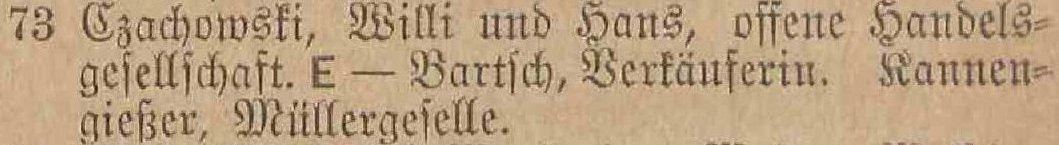 73 Czachowski, Willi und Hans, offene Handels-
gesellschaft. E — Bartsch, Verkäuferin. Kannen-
gießer, Müllergeselle.